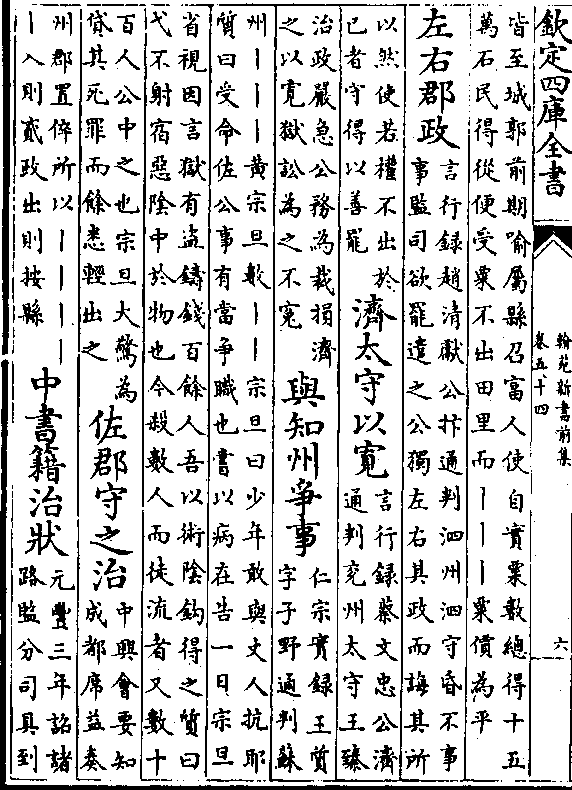 欽定四庫全書
翰苑新書前集
卷五十四
六
皆至城郭前期喻屬縣召富人使自實粟數總得十五
萬石民得從便受粟不出田里而丨丨丨粟價為平
左右郡政
言行録趙清獻公抃通判泗州泗守昏不事
事監司欲罷遣之公獨左右其政而誨其所
以然使若權不出於
已者守得以善罷
濟太守以寬
言行録蔡文忠公濟
通判兖州太守王臻
治政嚴急公務為裁損濟
之以寛獄訟為之不寃
與知州爭事
仁宗實録王質
字子野通判蘇
州丨丨丨丨黃宗旦數丨丨宗旦曰少年敢與丈人抗耶
質曰受命佐公事有當争職也書以病在告一日宗旦
省視因言獄有盜鑄錢百餘人吾以術陰鈎得之質曰
弋不射宿惡陰中於物也今殺數人而徒流者又數十
百人公中之也宗旦大驚為
貸其死罪而餘悉輕出之
佐郡守之治
中興會要知
成都席益奏
州郡置倅所以丨丨丨丨丨
丨入則貳政出則按縣
中書籍治狀
元豐三年詔諸
路監分司具到